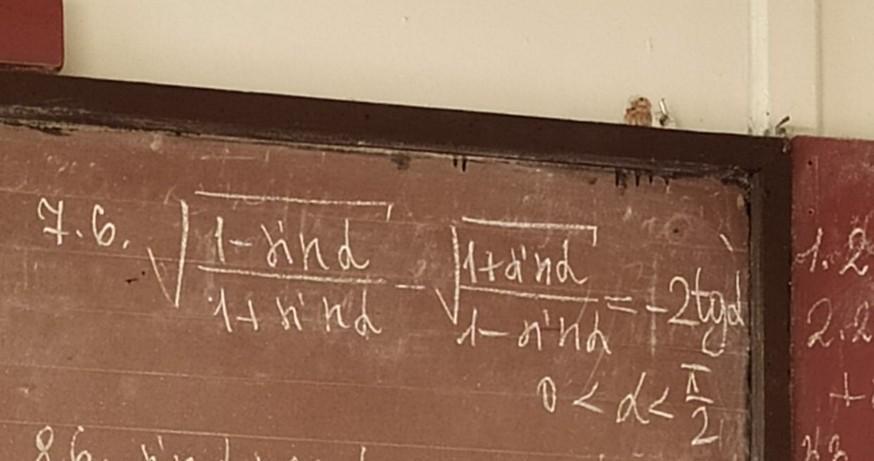 7.6. √((1-sinα)/(1+sinα)) - √((1+sinα)/(1-sinα)) = -2tgα
0 < α < π/2
1.2
2.2
+